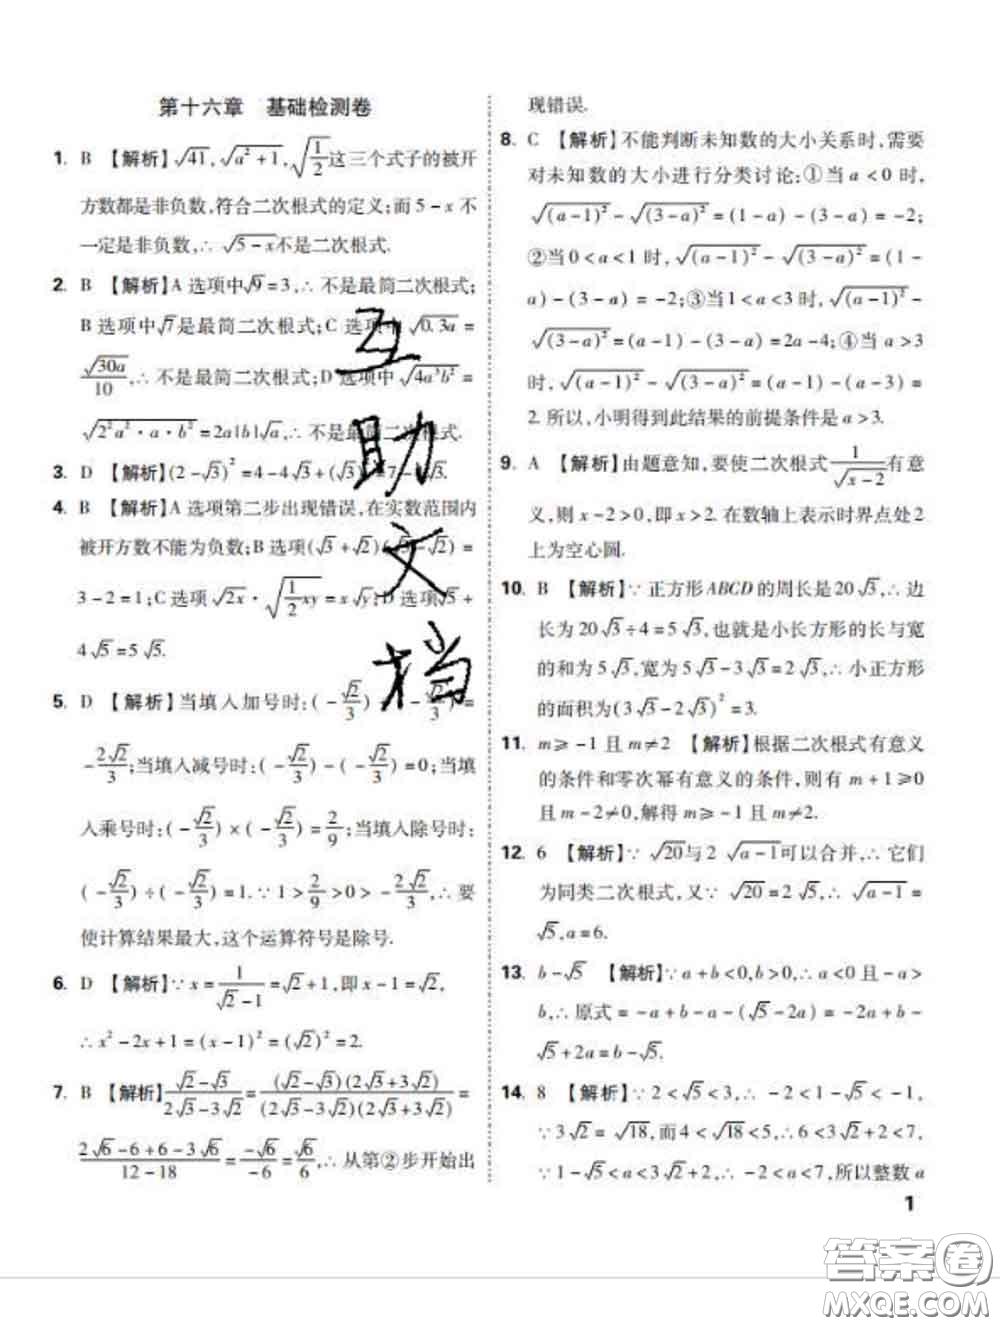 第十六章　基础检测卷
1. B 【解析】√41, √(a²+1), √(1/2)这三个式子的被开
方数都是非负数,符合二次根式的定义;而 5-x 不
一定是非负数,∴ √(5-x)不是二次根式.
2. B 【解析】A 选项中√9=3,∴ 不是最简二次根式;
B 选项中√7是最简二次根式;C 选项中 √(0.3a) =
√(30a)/10,∴ 不是最简二次根式;D 选项中 √(4a³b²) =
√(2²a²·a·b²)=2a|b|√a,∴ 不是最简二次根式.
3. D 【解析】(2-√3)²=4-4√3+(√3)²=7-4√3.
4. B 【解析】A 选项第二步出现错误,在实数范围内
被开方数不能为负数;B 选项(√3+√2)(√3-√2) =
3-2=1;C 选项 √(2x)·√(1/2 xy)=x√y;D 选项√5+
4√5=5√5.
5. D 【解析】当填入加号时:(-√2/3)+(-√2/3)=
-2√2/3;当填入减号时:(-√2/3)-(-√2/3)=0;当填
入乘号时:(-√2/3)×(-√2/3)=2/9;当填入除号时:
(-√2/3)÷(-√2/3)=1.∵1>2/9>0>-2√2/3,∴ 要
使计算结果最大,这个运算符号是除号.
6. D 【解析】∵x=1/(√2-1)=√2+1,即 x-1=√2,
∴x²-2x+1=(x-1)²=(√2)²=2.
7. B 【解析】(√2-√3)/(2√3-3√2)=(√2-√3)(2√3+3√2)/(2√3-3√2)(2√3+3√2)=
(2√6-6+6-3√6)/(12-18)=-√6/-6=√6/6,∴ 从第②步开始出
现错误.
8. C 【解析】不能判断未知数的大小关系时,需要
对未知数的大小进行分类讨论:①当 a<0 时,
√(a-1)²-√(3-a)²=(1-a)-(3-a)=-2;
②当 0<a<1 时,√(a-1)²-√(3-a)²=(1-
a)-(3-a)=-2;③当 1<a<3 时,√(a-1)²-
√(3-a)²=(a-1)-(3-a)=2a-4;④当 a>3
时,√(a-1)²-√(3-a)²=(a-1)-(a-3)=
2.所以,小明得到此结果的前提条件是 a>3.
9. A 【解析】由题意知,要使二次根式1/√(x-2)有意
义,则 x-2>0,即 x>2.在数轴上表示时界点处2
上为空心圆.
10. B 【解析】∵ 正方形 ABCD 的周长是 20√3,∴ 边
长为 20√3÷4=5√3,也就是小长方形的长与宽
的和为 5√3,宽为 5√3-3√3=2√3,∴ 小正方形
的面积为(3√3-2√3)²=3.
11. m≥-1 且 m≠2 【解析】根据二次根式有意义
的条件和零次幂有意义的条件,则有 m+1≥0
且 m-2≠0,解得 m≥-1 且 m≠2.
12. 6 【解析】∵ √20与 2√(a-1)可以合并,∴ 它们
为同类二次根式,又∵ √20=2√5,∴ √(a-1)=
√5,a=6.
13. b-√5 【解析】∵a+b<0,b>0,∴a<0 且-a>
b,∴ 原式=-a+b-a-(√5-2a)=-2a+b-
√5+2a=b-√5.
14. 8 【解析】∵2<√5<3,∴-2<1-√5<-1,
∵3√2=√18,而 4<√18<5,∴6<3√2+2<7,
∵1-√5<a<3√2+2,∴-2<a<7,所以整数 a
1
互
助
文
档
答案卷
MXQE.COM